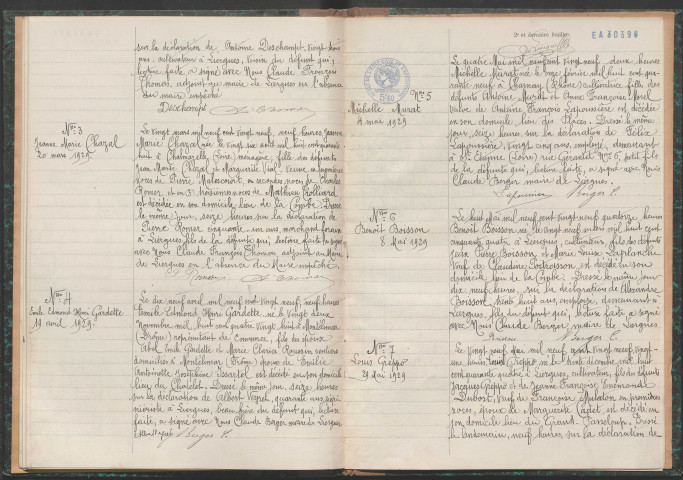 sur la déclaration de Antoine Deschamps, vingt huit
ans, cultivateur à Liergues, voisin du défunt qui,
lecture faite a signé avec Nous Claude François
Chomon, adjoint au maire de Liergues en l'absence
du maire empêché
Deschamps
N° 3
Jeanne Marie Chazal
20 mars 1929
Le vingt mars mil neuf cent vingt neuf, neuf heures Jeanne
Marie Chazal née le vingt six août mil huit cent quarante
huit à Chalmazelle (Loire) ménagère, fille des défunts
Jean Marie Chazal et Marguerite Vial, Veuve en premières
noces de Pierre, en secondes noces de Charles
Romer et en troisièmes noces de Mathieu Frolliard
est décédée en son domicile lieu de la Combe. Dressé
le même jour, seize heures sur la déclaration de
Pierre Romer cinquante ans, marchand forain
à Liergues, fils de la défunte qui, lecture faite a signé
avec Nous Claude François Chomon, adjoint au Maire
de Liergues en l'absence du Maire empêché
N° 4
Emile Edmond Henri Gardette
19 avril 1929
Le dix neuf avril mil neuf cent vingt neuf, neuf heures
Emile Edmond Henri Gardette né le vingt deux
Novembre mil huit cent quatre vingt huit à Montélimar
(Drôme) représentant de commerce, fils des époux
Abel Emile Gardette et Marie Clarice Roussin rentiers
domiciliés à Montélimar (Drôme) époux de Emilie
Antoinette Joséphine est décédé en son domicile
lieu du Chatelet. Dressé le même jour, seize heures
sur la déclaration de Albert Vapel, quarante ans,
à Liergues, beau frère du défunt qui, lecture
faite, a signé avec Nous Claude Berger maire de Liergues
Berger C.
2e et dernière feuillet
EA 30390
N° 5
Michelle Murat
4 mai 1929
Le quatre Mai mil neuf cent vingt neuf, deux heures
Michelle Murat née le onze février mil huit cent qua-
rante neuf à Charnay (Rhône) cultivatrice, fille des
défunts Antoine Murat et Anne Françoise
Veuve de Antoine François Lapoussière est décédée
en son domicile, lieu des Places. Dressé le même
jour, seize heures sur la déclaration de Félix
Lapoussière, vingt cinq ans, employé, demeurant
à St Etienne (Loire) rue Gérentet N° 6, petit fils
de la défunte qui, lecture faite, a signé avec Nous
Claude Berger maire de Liergues.
Lapoussière Berger C.
N° 6
Benoît Boisson
8 Mai 1929
Le huit Mai mil neuf cent vingt neuf quatorze heures
Benoît Boisson né le vingt mil huit cent
cinquante quatre à Liergues, cultivateur, fils des défunts
Jean Pierre Boisson et Marie Louise Laplanche
Veuf de Claudine est décédé en son
domicile lieu de la Combe. Dressé le même jour
dix neuf heures, sur la déclaration de Alexandre
Boisson, trente huit ans, employé, demeurant à
Liergues, fils du défunt qui, lecture faite a signé
avec Nous Claude Berger, maire de Liergues.
Boisson Berger C.
N° 7
Louis Greppo
29 Mai 1929
Le vingt neuf Mai mil neuf cent vingt neuf vingt-
une heures, Greppo né le trente décembre mil huit
cent quarante quatre à Liergues, cultivateur, fils des défunts
Jacques Greppo et de Jeanne Françoise Enémonde
Dubost, Veuf de Françoise Mulaton en premières
noces, époux de Marguerite Cadet est décédé en
son domicile lieu du Grand. Dressé
le lendemain, neuf heures, sur la déclaration de